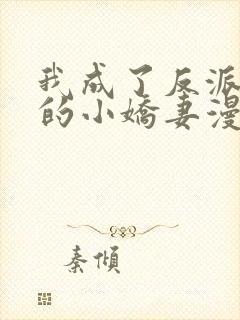 我成了反派
的小嬌妻漫
秦傾